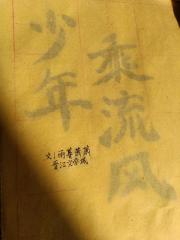 少年
乘流风
文|雨暮萧萧
晋江文学城